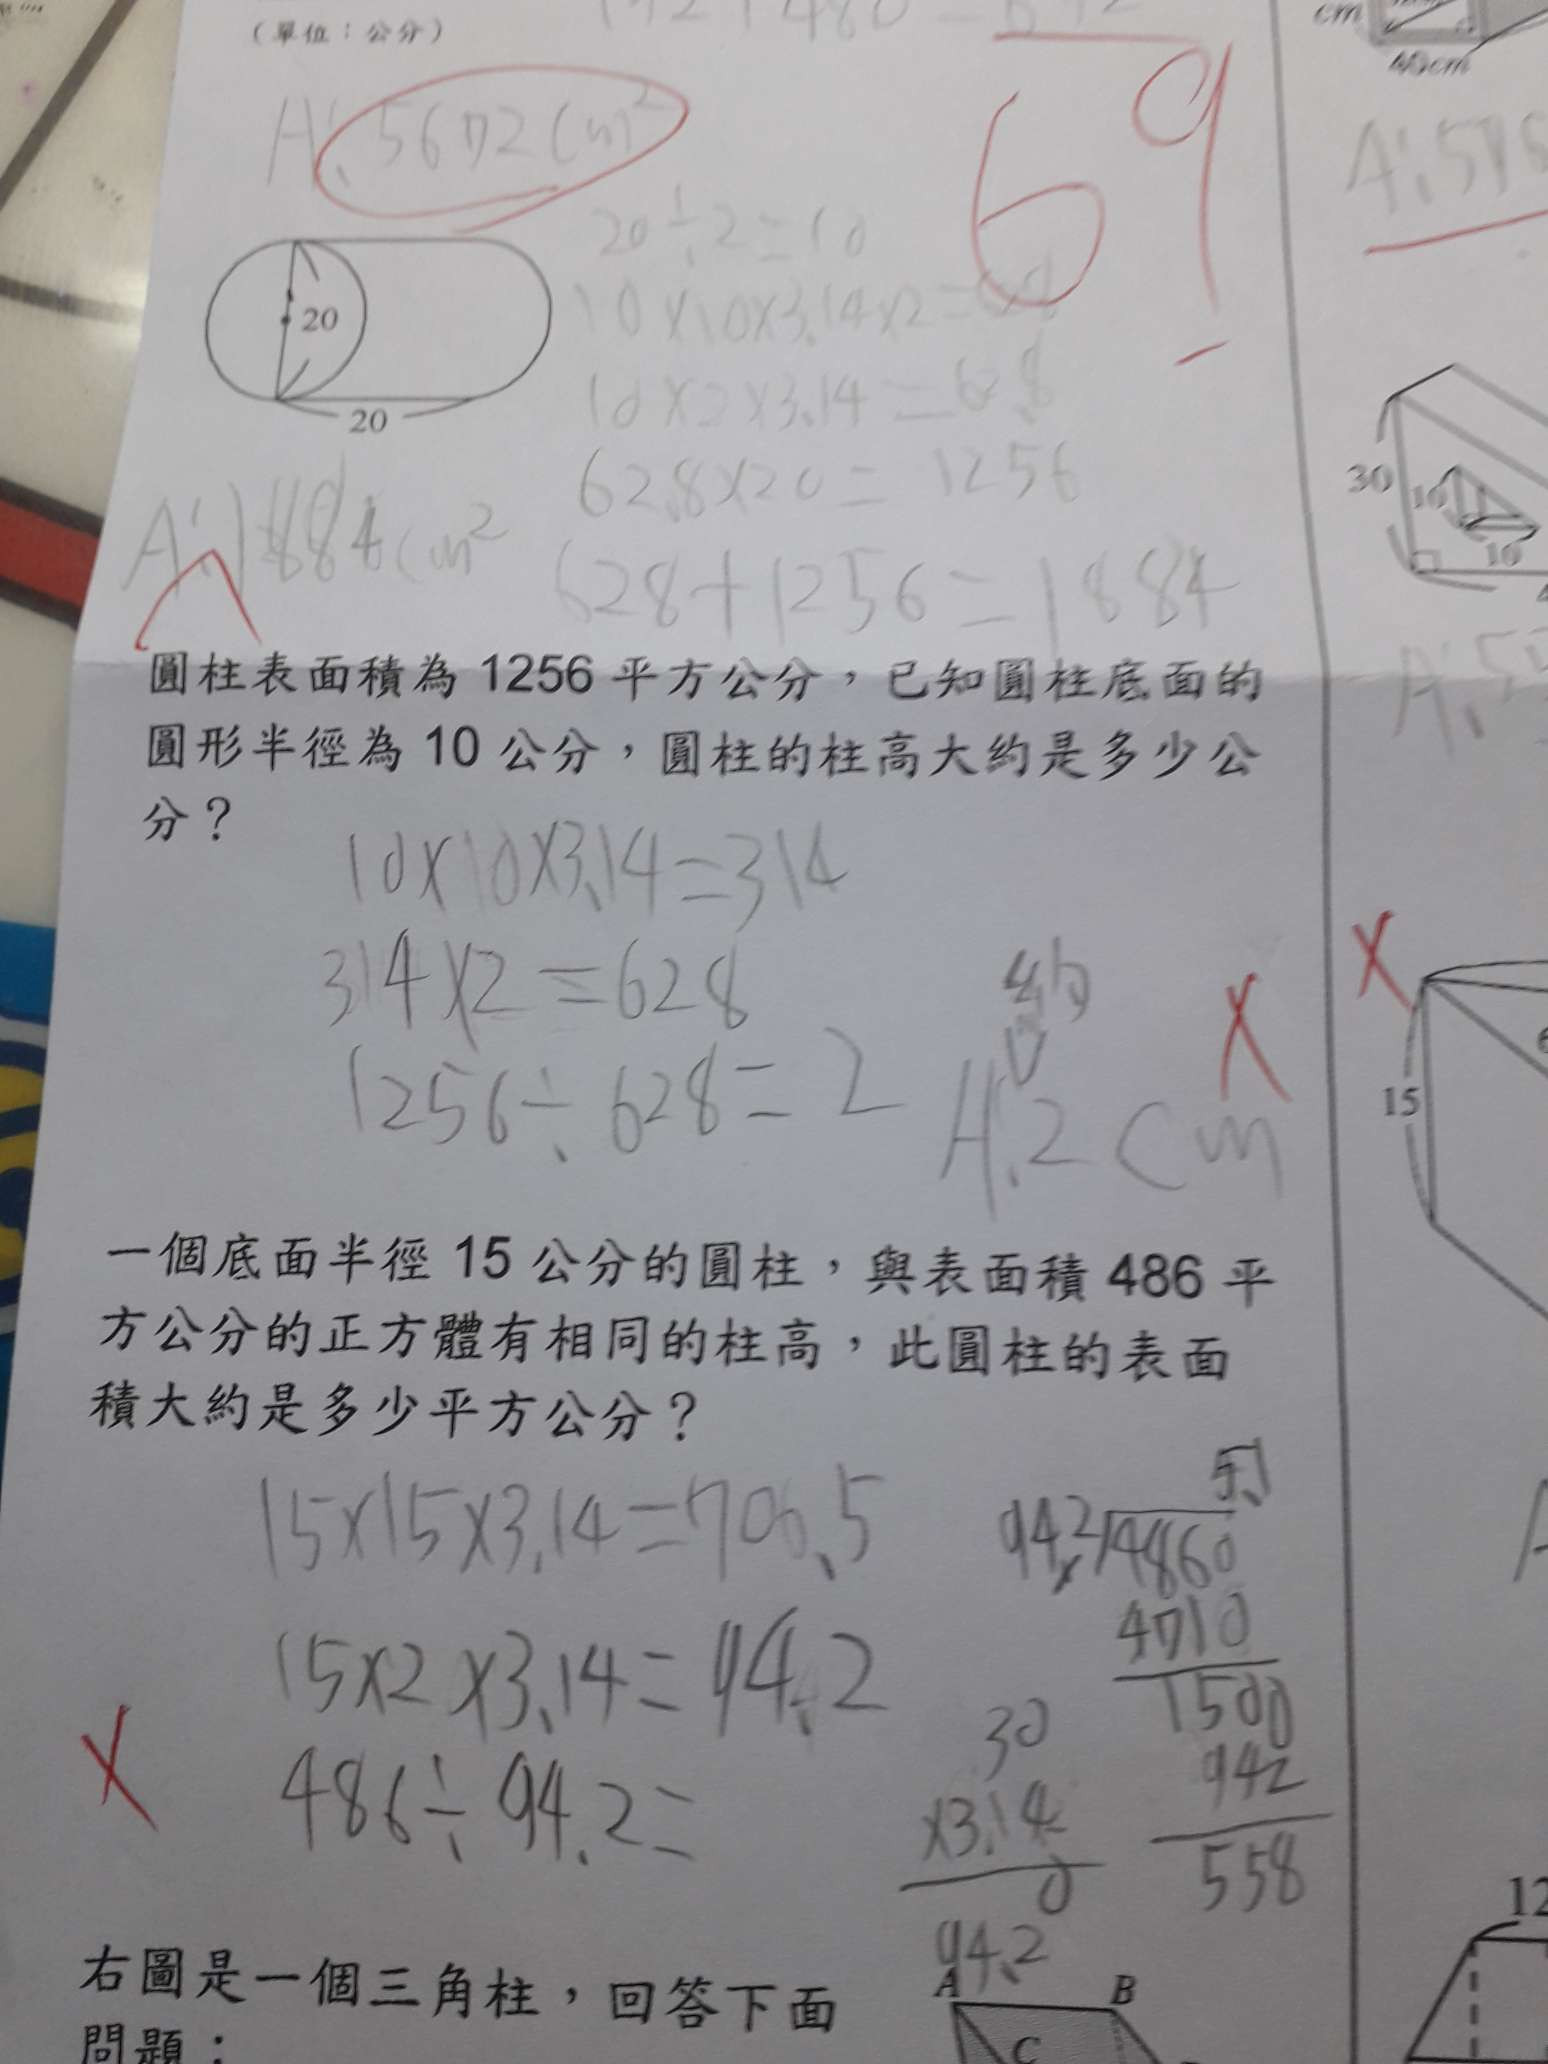 (單位：公分)
cm
40cm
69
A:5672cm²
20÷2=10
20
10×10×3.14×2=
10×2×3.14=62.8
20
62.8×20=1256
A:1884cm²
628+1256=1884
圓柱表面積為 1256 平方公分，已知圓柱底面的
圓形半徑為 10 公分，圓柱的柱高大約是多少公
分？
10×10×3.14=314
314×2=628
約
1256÷628=2
A:2cm
一個底面半徑 15 公分的圓柱，與表面積 486 平
方公分的正方體有相同的柱高，此圓柱的表面
積大約是多少平方公分？
15×15×3.14=706.5
5.1
94.2
4860
4710
1500
942
558
15×2×3.14=94.2
486÷94.2=
30
×3.14
0
94.2
右圖是一個三角柱，回答下面
問題：
A
B
C
30
10
10
15
12